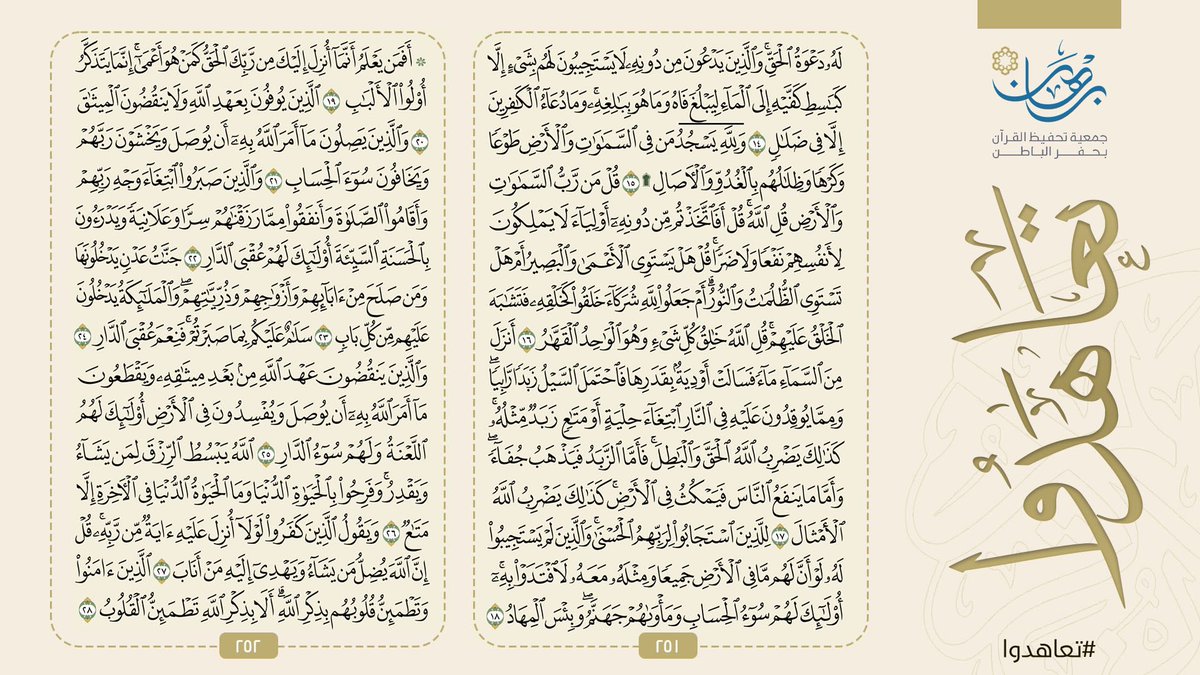 برهان
جمعية تحفيظ القرآن
بحفر الباطن
تعاهدوا
#تعاهدوا
لَهُۥ دَعْوَةُ ٱلْحَقِّۚ وَٱلَّذِينَ يَدْعُونَ مِن دُونِهِۦ لَا يَسْتَجِيبُونَ لَهُم بِشَىْءٍ إِلَّا
كَبَـٰسِطِ كَفَّيْهِ إِلَى ٱلْمَآءِ لِيَبْلُغَ فَاهُ وَمَا هُوَ بِبَـٰلِغِهِۦۚ وَمَا دُعَآءُ ٱلْكَـٰفِرِينَ
إِلَّا فِى ضَلَـٰلٍ ١٤ وَلِلَّهِ يَسْجُدُ مَن فِى ٱلسَّمَـٰوَٰتِ وَٱلْأَرْضِ طَوْعًا
وَكَرْهًا وَظِلَـٰلُهُم بِٱلْغُدُوِّ وَٱلْـَٔاصَالِ ۩ ١٥ قُلْ مَن رَّبُّ ٱلسَّمَـٰوَٰتِ
وَٱلْأَرْضِ قُلِ ٱللَّهُۚ قُلْ أَفَٱتَّخَذْتُم مِّن دُونِهِۦٓ أَوْلِيَآءَ لَا يَمْلِكُونَ
لِأَنفُسِهِمْ نَفْعًا وَلَا ضَرًّاۚ قُلْ هَلْ يَسْتَوِى ٱلْأَعْمَىٰ وَٱلْبَصِيرُ أَمْ هَلْ
تَسْتَوِى ٱلظُّلُمَـٰتُ وَٱلنُّورُۗ أَمْ جَعَلُوا۟ لِلَّهِ شُرَكَآءَ خَلَقُوا۟ كَخَلْقِهِۦ فَتَشَـٰبَهَ
ٱلْخَلْقُ عَلَيْهِمْۚ قُلِ ٱللَّهُ خَـٰلِقُ كُلِّ شَىْءٍ وَهُوَ ٱلْوَٰحِدُ ٱلْقَهَّـٰرُ ١٦ أَنزَلَ
مِنَ ٱلسَّمَآءِ مَآءً فَسَالَتْ أَوْدِيَةٌۢ بِقَدَرِهَا فَٱحْتَمَلَ ٱلسَّيْلُ زَبَدًا رَّابِيًاۖ
وَمِمَّا يُوقِدُونَ عَلَيْهِ فِى ٱلنَّارِ ٱبْتِغَآءَ حِلْيَةٍ أَوْ مَتَـٰعٍ زَبَدٌ مِّثْلُهُۥۚ
كَذَٰلِكَ يَضْرِبُ ٱللَّهُ ٱلْحَقَّ وَٱلْبَـٰطِلَۚ فَأَمَّا ٱلزَّبَدُ فَيَذْهَبُ جُفَآءًۖ
وَأَمَّا مَا يَنفَعُ ٱلنَّاسَ فَيَمْكُثُ فِى ٱلْأَرْضِۚ كَذَٰلِكَ يَضْرِبُ ٱللَّهُ
ٱلْأَمْثَالَ ١٧ لِلَّذِينَ ٱسْتَجَابُوا۟ لِرَبِّهِمُ ٱلْحُسْنَىٰۚ وَٱلَّذِينَ لَمْ يَسْتَجِيبُوا۟
لَهُۥ لَوْ أَنَّ لَهُم مَّا فِى ٱلْأَرْضِ جَمِيعًا وَمِثْلَهُۥ مَعَهُۥ لَٱفْتَدَوْا۟ بِهِۦٓۚ
أُو۟لَـٰٓئِكَ لَهُمْ سُوٓءُ ٱلْحِسَابِ وَمَأْوَىٰهُمْ جَهَنَّمُۖ وَبِئْسَ ٱلْمِهَادُ ١٨
٢٥١
۞ أَفَمَن يَعْلَمُ أَنَّمَآ أُنزِلَ إِلَيْكَ مِن رَّبِّكَ ٱلْحَقُّ كَمَنْ هُوَ أَعْمَىٰٓۚ إِنَّمَا يَتَذَكَّرُ
أُو۟لُوا۟ ٱلْأَلْبَـٰبِ ١٩ ٱلَّذِينَ يُوفُونَ بِعَهْدِ ٱللَّهِ وَلَا يَنقُضُونَ ٱلْمِيثَـٰقَ
٢٠ وَٱلَّذِينَ يَصِلُونَ مَآ أَمَرَ ٱللَّهُ بِهِۦٓ أَن يُوصَلَ وَيَخْشَوْنَ رَبَّهُمْ
وَيَخَافُونَ سُوٓءَ ٱلْحِسَابِ ٢١ وَٱلَّذِينَ صَبَرُوا۟ ٱبْتِغَآءَ وَجْهِ رَبِّهِمْ
وَأَقَامُوا۟ ٱلصَّلَوٰةَ وَأَنفَقُوا۟ مِمَّا رَزَقْنَـٰهُمْ سِرًّا وَعَلَانِيَةً وَيَدْرَءُونَ
بِٱلْحَسَنَةِ ٱلسَّيِّئَةَ أُو۟لَـٰٓئِكَ لَهُمْ عُقْبَى ٱلدَّارِ ٢٢ جَنَّـٰتُ عَدْنٍ يَدْخُلُونَهَا
وَمَن صَلَحَ مِنْ ءَابَآئِهِمْ وَأَزْوَٰجِهِمْ وَذُرِّيَّـٰتِهِمْۖ وَٱلْمَلَـٰٓئِكَةُ يَدْخُلُونَ
عَلَيْهِم مِّن كُلِّ بَابٍ ٢٣ سَلَـٰمٌ عَلَيْكُم بِمَا صَبَرْتُمْۚ فَنِعْمَ عُقْبَى ٱلدَّارِ ٢٤
وَٱلَّذِينَ يَنقُضُونَ عَهْدَ ٱللَّهِ مِنۢ بَعْدِ مِيثَـٰقِهِۦ وَيَقْطَعُونَ
مَآ أَمَرَ ٱللَّهُ بِهِۦٓ أَن يُوصَلَ وَيُفْسِدُونَ فِى ٱلْأَرْضِ أُو۟لَـٰٓئِكَ لَهُمُ
ٱللَّعْنَةُ وَلَهُمْ سُوٓءُ ٱلدَّارِ ٢٥ ٱللَّهُ يَبْسُطُ ٱلرِّزْقَ لِمَن يَشَآءُ
وَيَقْدِرُۚ وَفَرِحُوا۟ بِٱلْحَيَوٰةِ ٱلدُّنْيَا وَمَا ٱلْحَيَوٰةُ ٱلدُّنْيَا فِى ٱلْـَٔاخِرَةِ إِلَّا
مَتَـٰعٌ ٢٦ وَيَقُولُ ٱلَّذِينَ كَفَرُوا۟ لَوْلَآ أُنزِلَ عَلَيْهِ ءَايَةٌ مِّن رَّبِّهِۦۗ قُلْ
إِنَّ ٱللَّهَ يُضِلُّ مَن يَشَآءُ وَيَهْدِىٓ إِلَيْهِ مَنْ أَنَابَ ٢٧ ٱلَّذِينَ ءَامَنُوا۟
وَتَطْمَئِنُّ قُلُوبُهُم بِذِكْرِ ٱللَّهِۗ أَلَا بِذِكْرِ ٱللَّهِ تَطْمَئِنُّ ٱلْقُلُوبُ ٢٨
٢٥٢